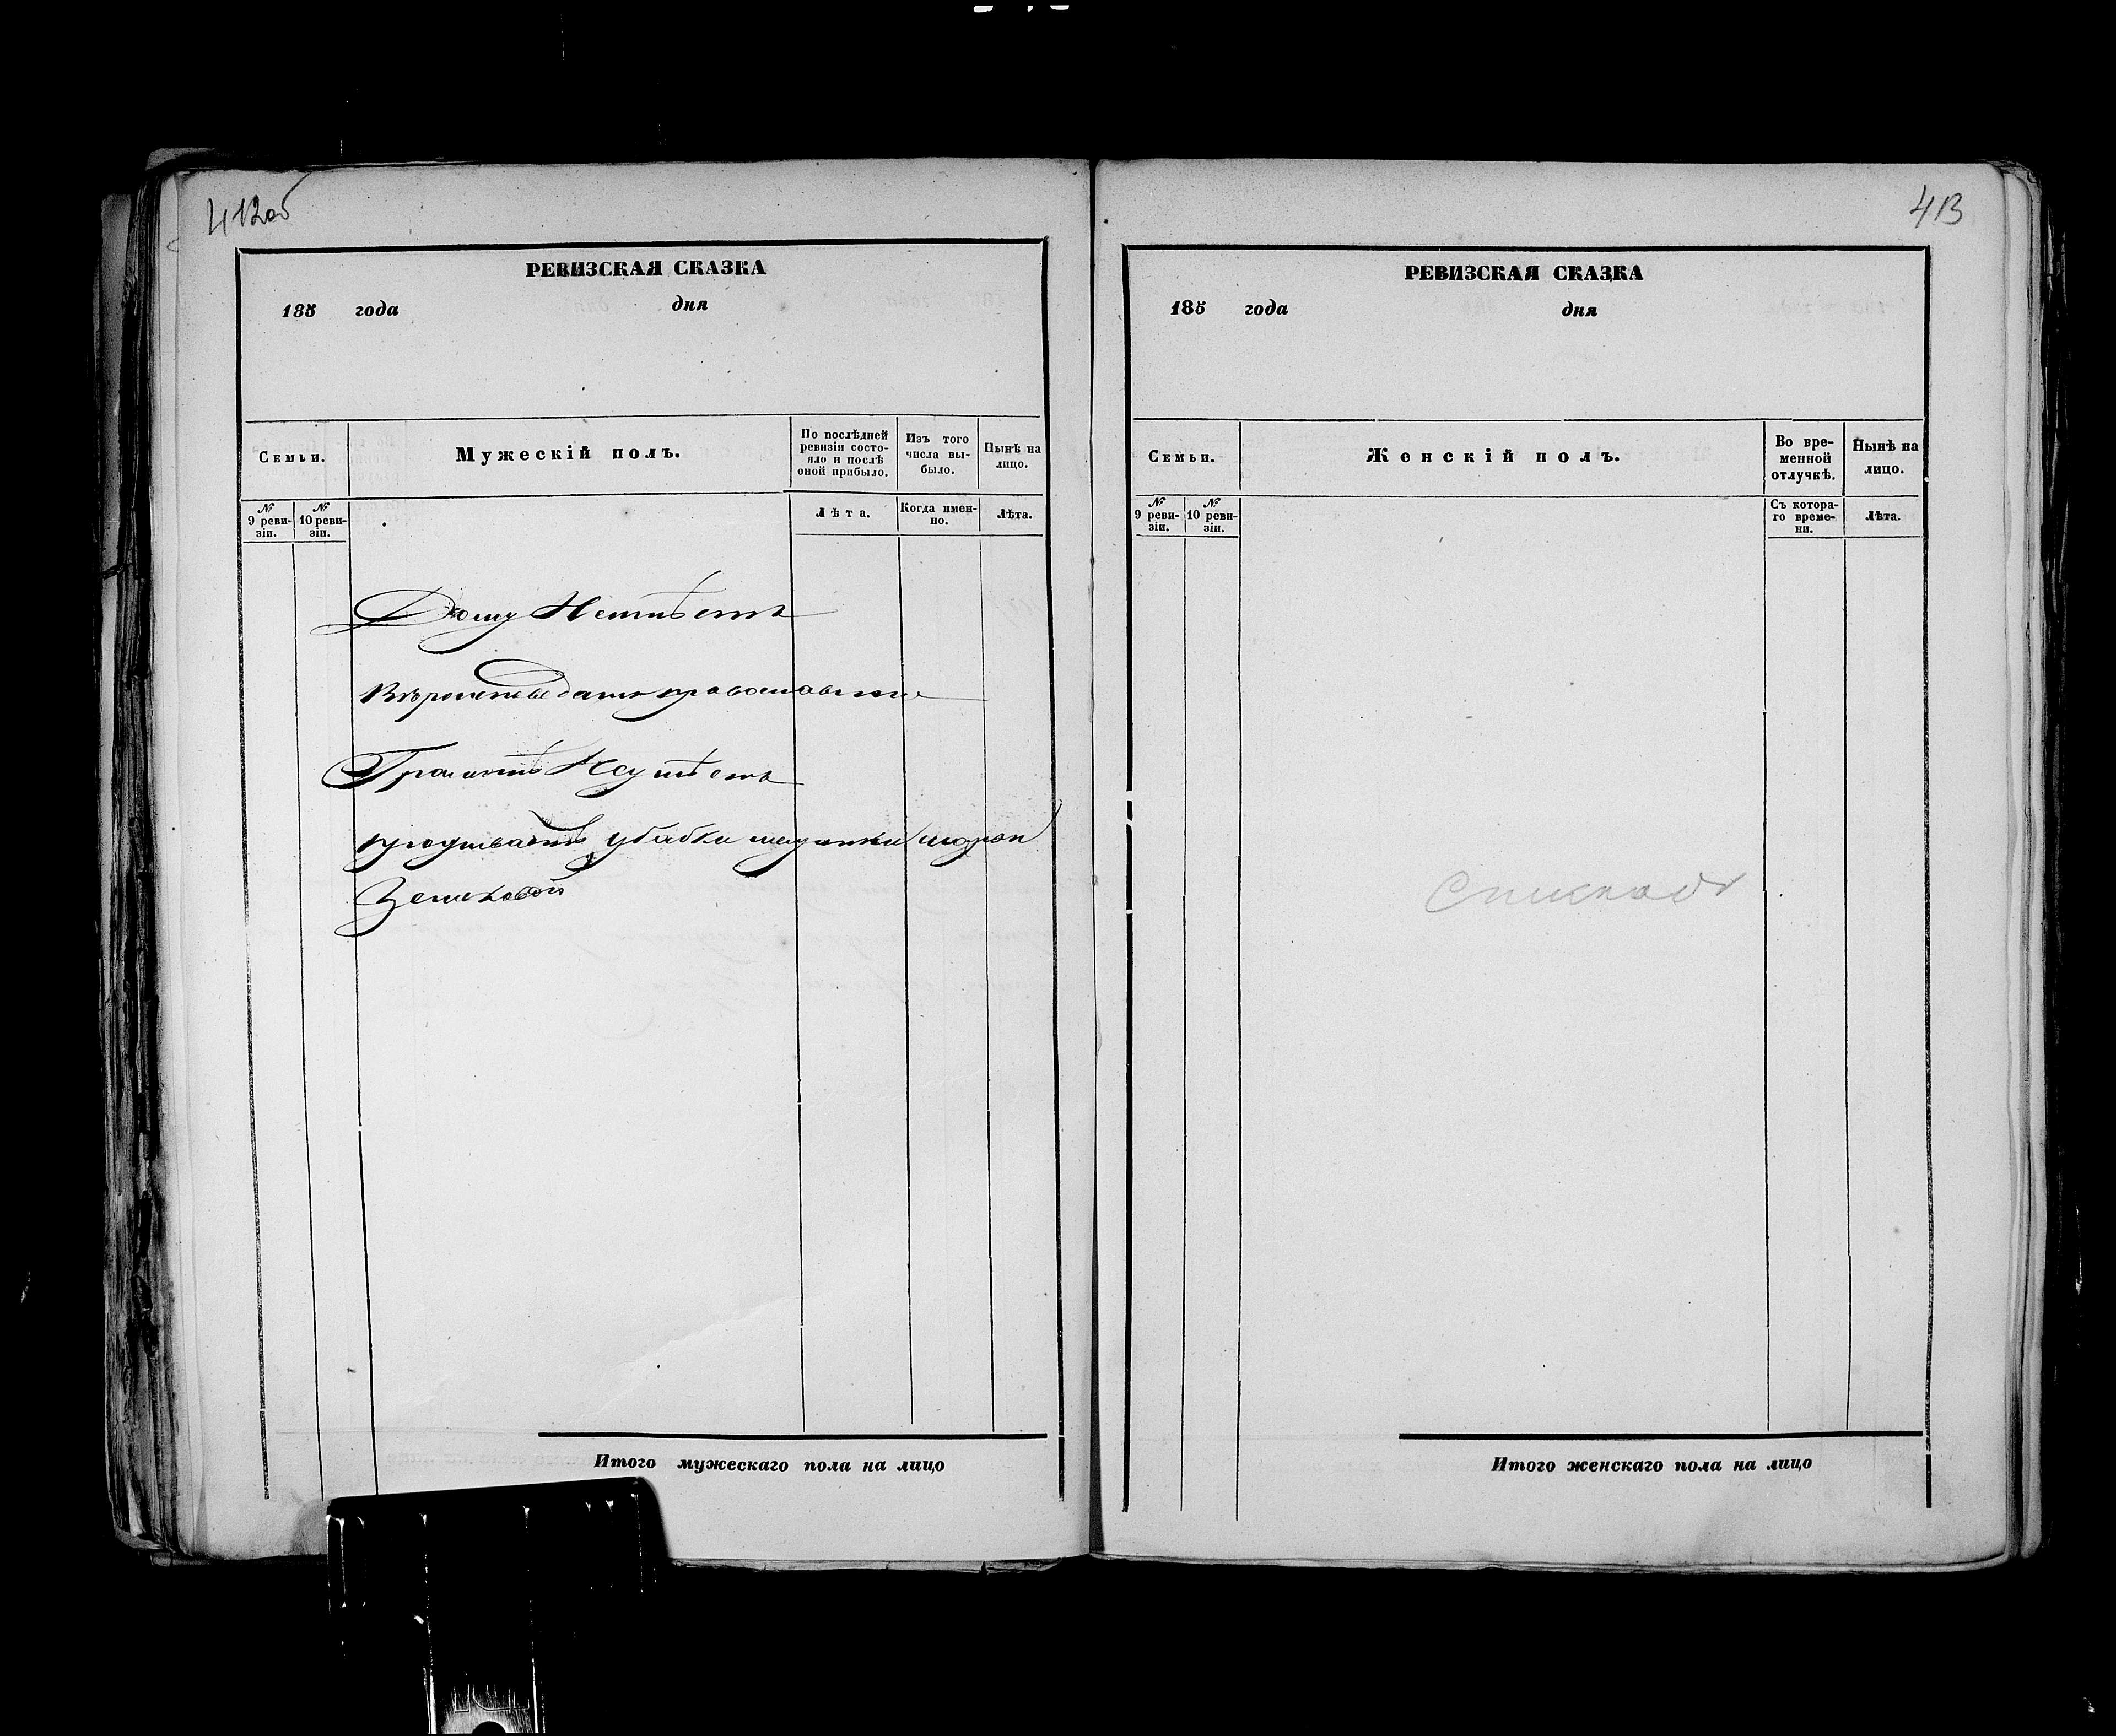 412об
РЕВИЗСКАЯ СКАЗКА
185 года дня
Семьи.
Мужескій полъ.
По послѣдней ревизіи состояло и послѣ оной прибыло.
Изъ того числа выбыло.
Нынѣ на лицо.
№ 9 ревизіи.
№ 10 ревизіи.
Лѣта.
Когда именно.
Лѣта.
Дому Неимѣетъ
Вѣроисповеданія православнаго
Грамотѣ Неумѣетъ
Итого мужескаго пола на лицо
413
РЕВИЗСКАЯ СКАЗКА
185 года дня
Семьи.
Женскій полъ.
Во временной отлучкѣ.
Нынѣ на лицо.
№ 9 ревизіи.
№ 10 ревизіи.
Съ котораго времени.
Лѣта.
Итого женскаго пола на лицо